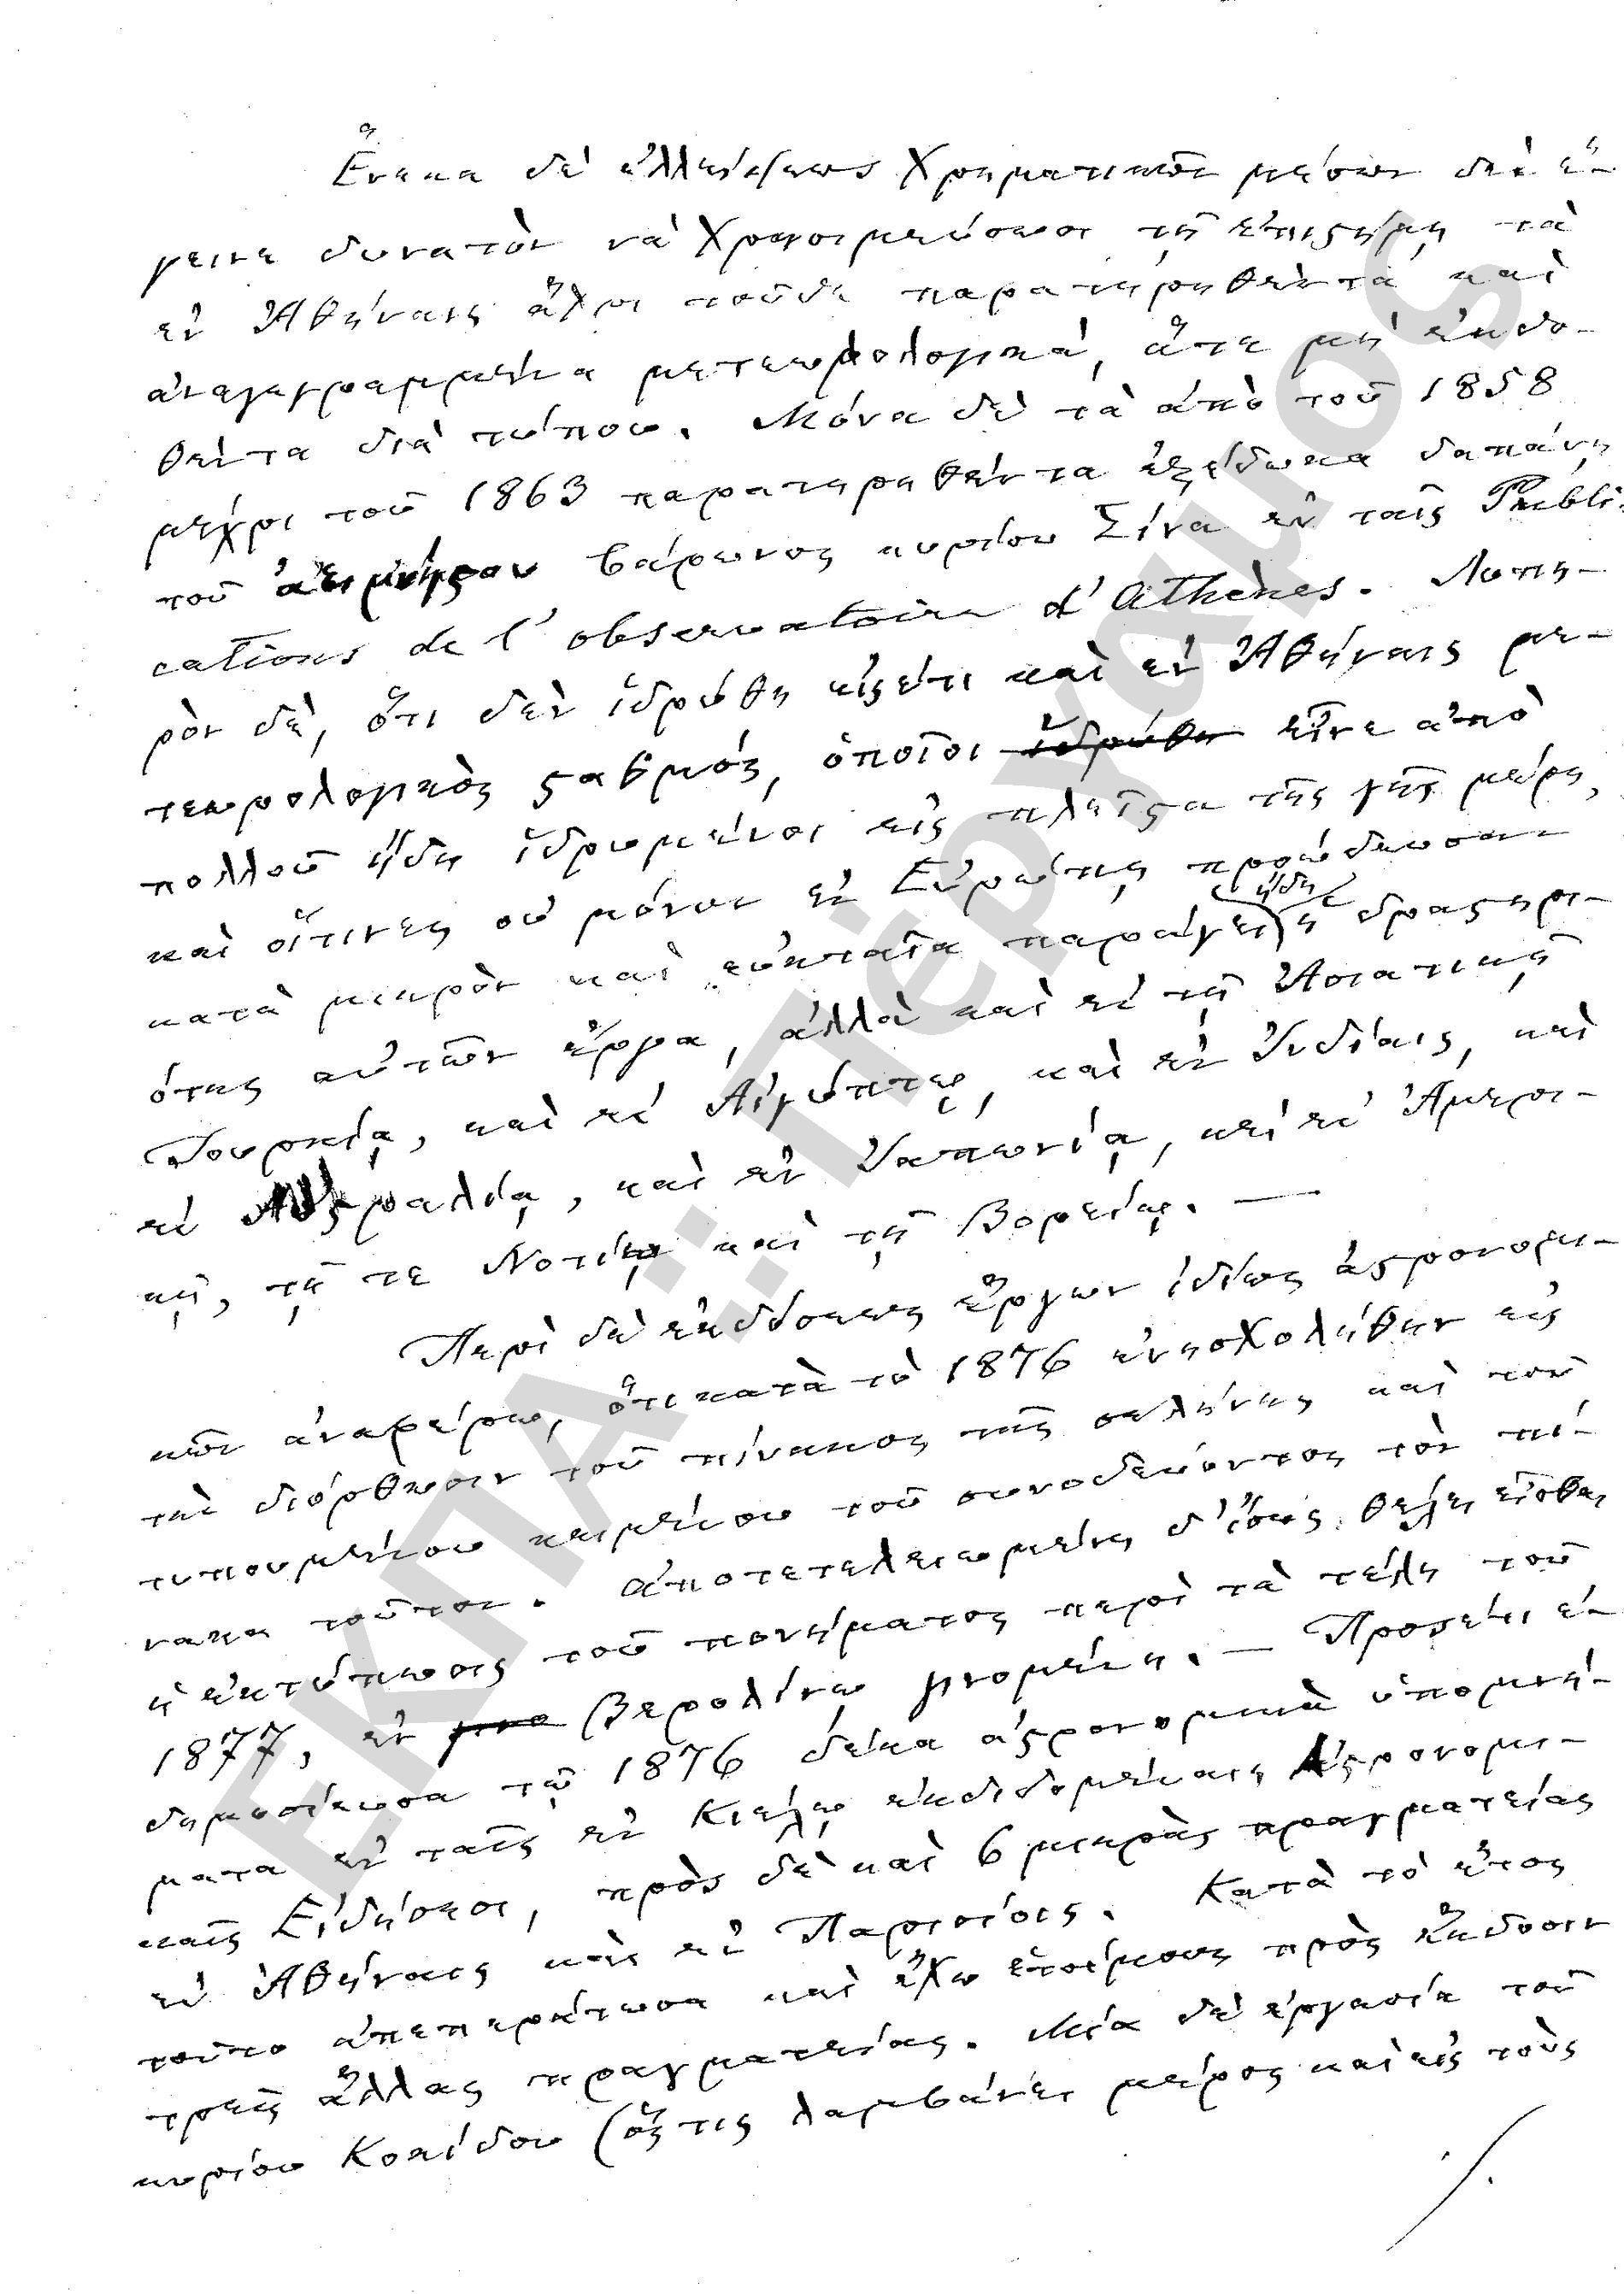 Ἕνεκα δὲ ἐλλείψεως χρηματικῶν μέσων δὲν ἔ-
γεινε δυνατὸν νὰ χρησιμεύσωσι τῇ ἐπιστήμῃ τὰ
ἐν Ἀθήναις ἄχρι τοῦδε παρατηρηθέντα καὶ
ἀναγεγραμμένα μετεωρολογικά, ἅτε μὴ ἐκδο-
θέντα διὰ τύπου. Μόνα δὲ τὰ ἀπὸ τοῦ 1858
μέχρι τοῦ 1863 παρατηρηθέντα ἐξέδωκα δαπάνῃ
τοῦ ἀειμνήστου βάρωνος κυρίου Σίνα ἐν ταῖς Publi-
cations de l'observatoire d'Athènes. Λυπη-
ρὸν δὲ, ὅτι δὲν ἱδρύθη εἰσέτι καὶ ἐν Ἀθήναις με-
τεωρολογικὸς σταθμός, ὁποῖοι εἶνε ἀπὸ
πολλοῦ ἤδη ἱδρυμένοι εἰς πλεῖστα τῆς γῆς μέρη,
καὶ οἵτινες οὐ μόνον ἐν Εὐρώπῃ προώδευσαν
κατὰ μικρὸν καὶ εὐκταῖα παράγει ἤδη ἡ δραστηρι-
ότης αὐτῶν ἔργα, ἀλλὰ καὶ ἐν τῇ Ἀσιατικῇ
Τουρκίᾳ, καὶ ἐν Αἰγύπτῳ, καὶ ἐν Ἰνδίαις, καὶ
ἐν Αὐστραλίᾳ, καὶ ἐν Ἰαπωνίᾳ, καὶ ἐν Ἀμερι-
κῇ, τῇ τε Νοτίῳ καὶ τῇ Βορείῳ. —
Περὶ δὲ ἐκδόσεως ἔργων ἰδίως ἀστρονομι-
κῶν ἀναφέρω, ὅτι κατὰ τὸ 1876 ἐνησχολήθην εἰς
τὴν διόρθωσιν τοῦ πίνακος τῆς σελήνης καὶ τοῦ
τυπουμένου κειμένου τοῦ συνοδεύοντος τὸν πί-
νακα τοῦτον. ἀποτετελειωμένη δ' ἴσως θέλει εἶσθαι
ἡ ἐκτύπωσις τοῦ πονήματος περὶ τὰ τέλη τοῦ
1877, ἐν Βερολίνῳ γινομένη. — Προσέτι ἐ-
δημοσίευσα τῷ 1876 δέκα ἀστρονομικὰ ὑπομνή-
ματα ἐν ταῖς ἐν Κιέλῳ ἐκδιδομέναις Ἀστρονομι-
καῖς Εἰδήσεσι, πρὸς δὲ καὶ 6 μικρὰς πραγματείας
ἐν Ἀθήναις καὶ ἐν Παρισίοις. Κατὰ τὸ ἔτος
τοῦτο ἀπεπεράτωσα καὶ ἔχω ἑτοίμους πρὸς ἔκδοσιν
τρεῖς ἄλλας πραγματείας. Μία δὲ ἐργασία τοῦ
κυρίου Κοκίδου (ὅς τις λαμβάνει μέρος καὶ εἰς τοὺς
./.
ΕΚΠΑ.:Πέργαμος